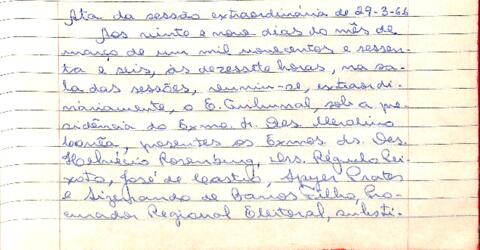 Ata da sessão extraordinária de 29-3-66
Aos vinte e nove dias do mês de
março de um mil novecentos e sessen-
ta e seis, às dezessete horas, na sa-
la das sessões, reuniu-se, extraordi-
nàriamente, o E. Tribunal, sob a pre-
sidência do Exmo. Sr. Des. Merolino
Corrêa, presentes os Exmos. drs. Des.
Helvécio Rosenburg, drs. Régulo Pei-
xoto, José de Castro, Apyer Prates
e Sizenando de Barros Filho Pro-
curador Regional Eleitoral, substi-